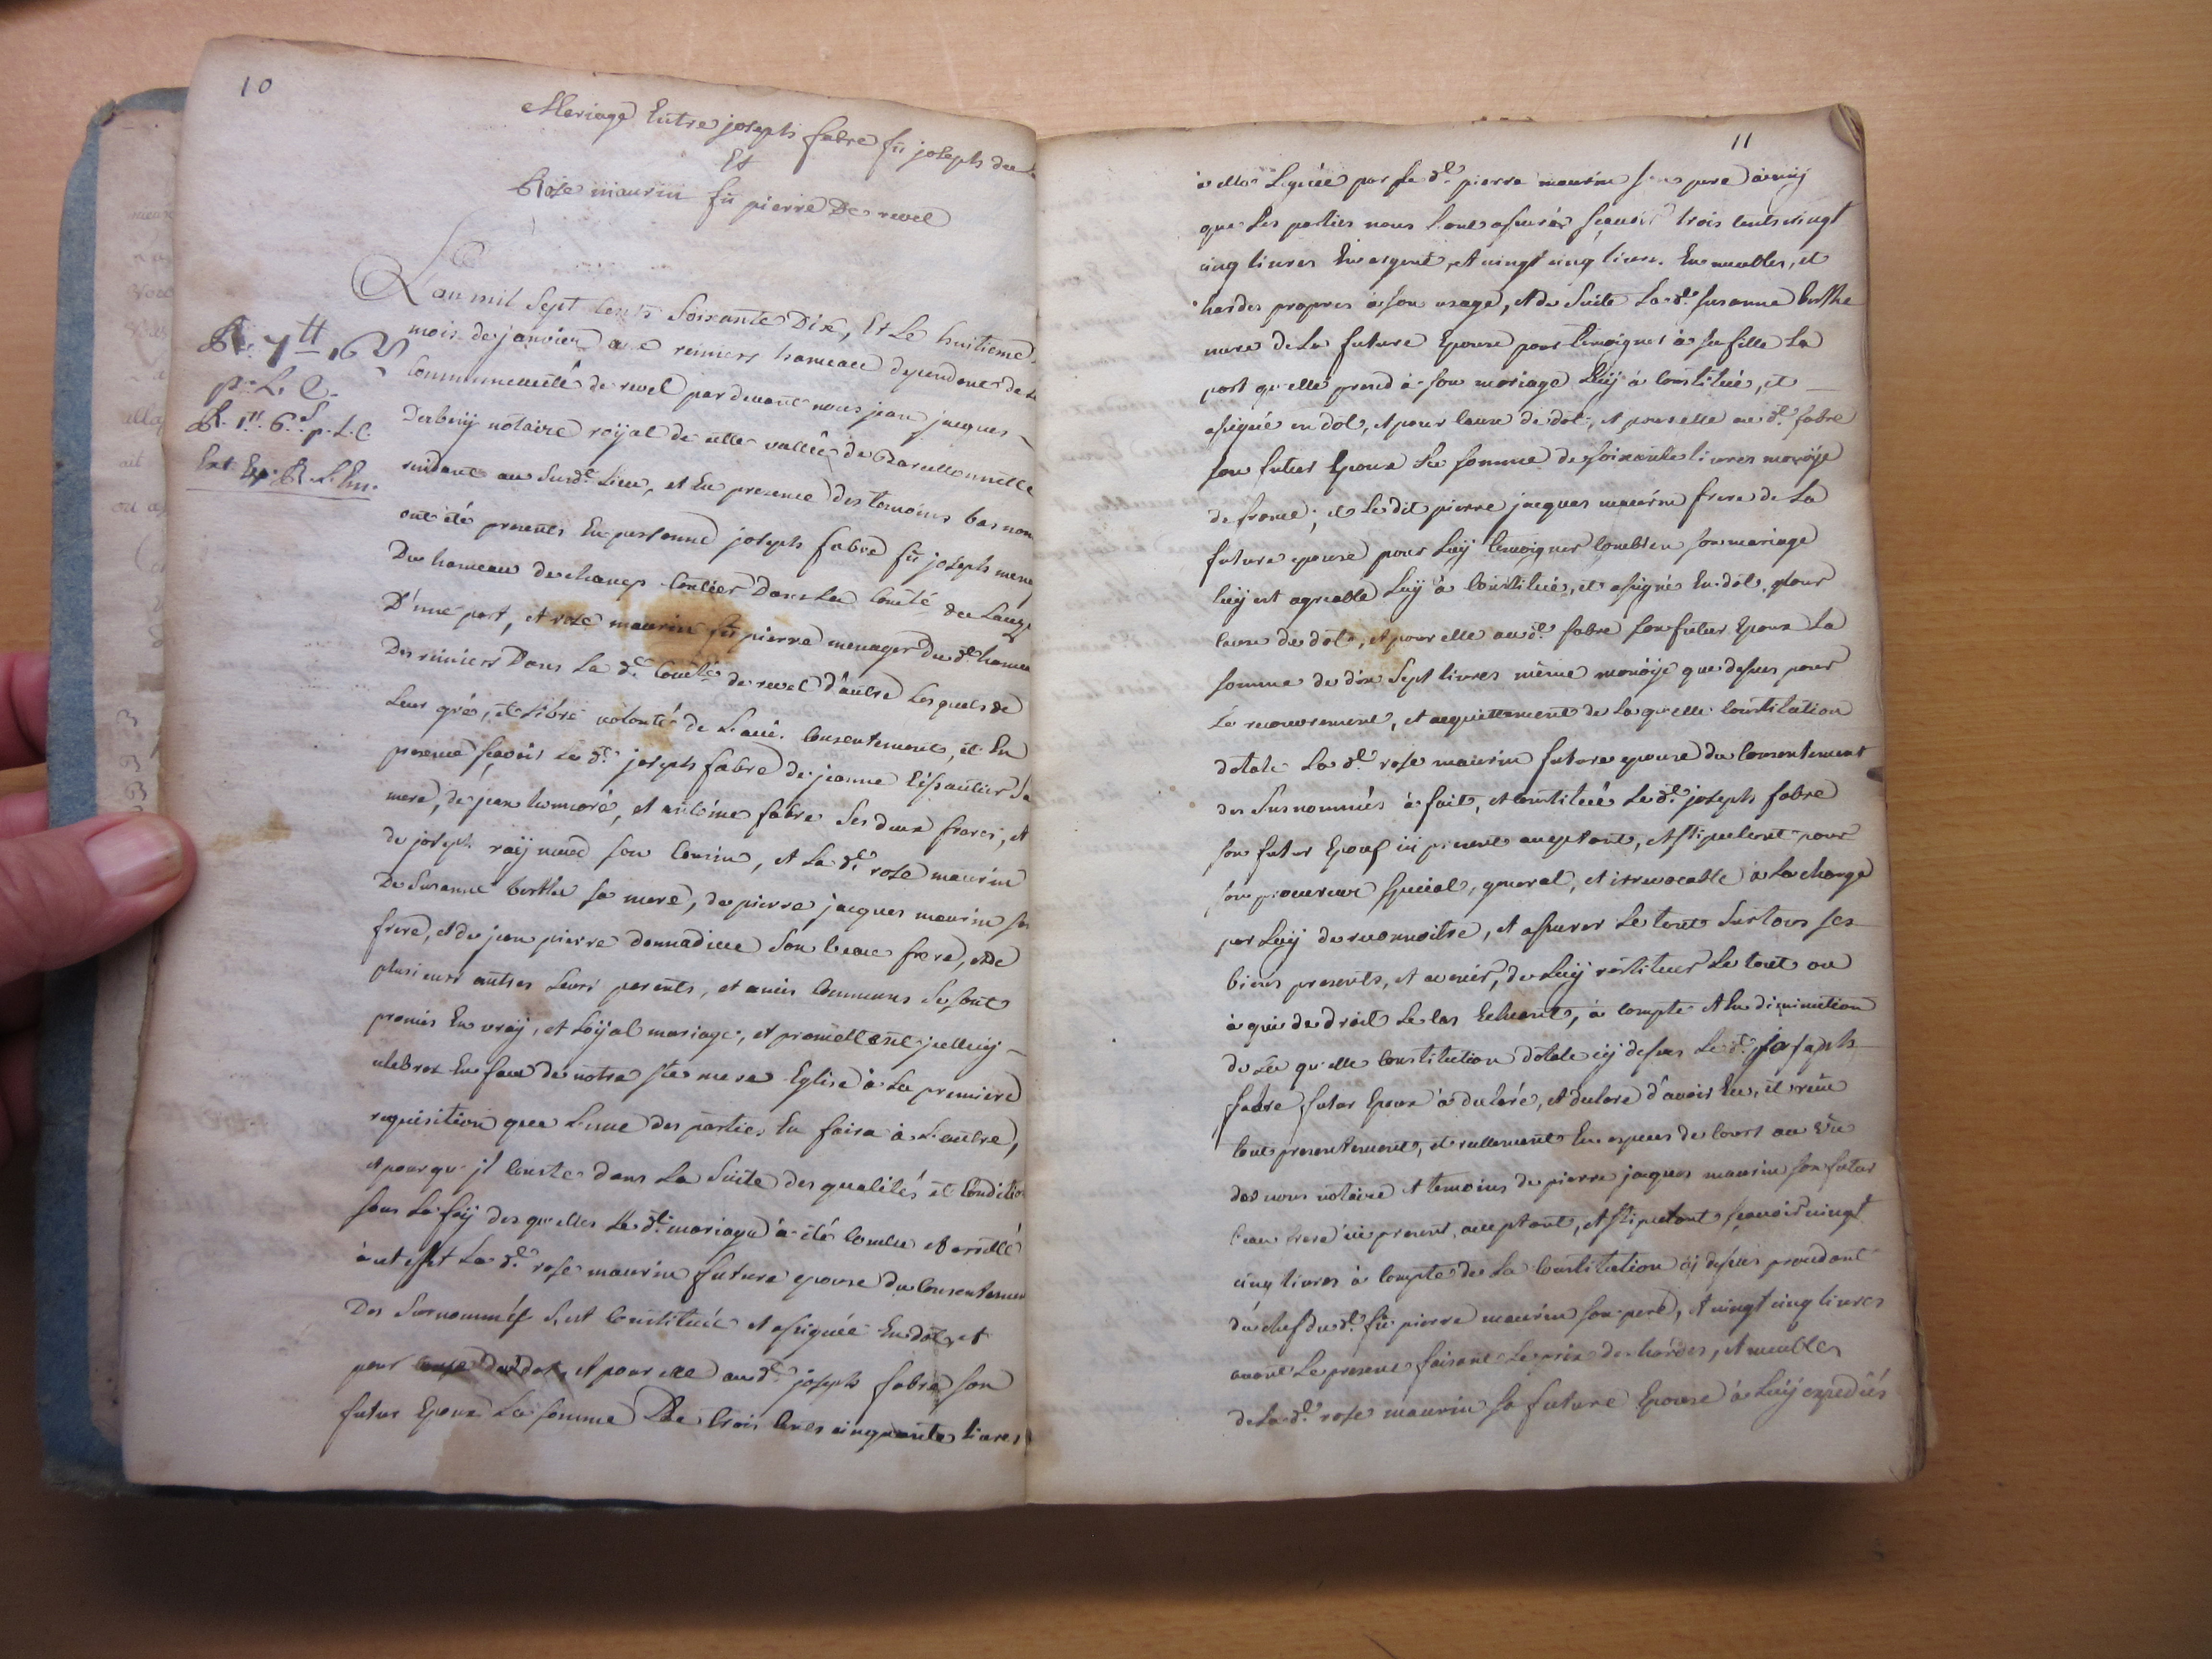 10
Mariage Entre joseph fabre fû joseph du
Et
Rose maurin fû pierre De revel
L'an mil sept cents soixante Dix, Et Le huitieme
mois de janvier a reiniers hameau dependant de
Communeauté de revel par devant nous jean jacques
Derbezij notaire roijal de cette vallée de Barcellonnette
residant au susd.t Lieu, et En presence des temoins bas nom
R. 7tt 16
p. L. C.
R. 1tt. 6s. p. L. C.
Ext. Exp.
ont été presents En personne joseph fabre fû joseph mena
Du hameau de champ contier Dans La Comté du Lauz
D'une part, et rose maurin fû pierre menager Du d.t hameau
Des reiniers Dans La d.e Com.té de revel d'autre Lesquels de
Leur gré, et Libre volonté de L'avis, Consentement, et En
presence sçavoir Le d.t joseph fabre de jeanne Eissautier Sa
mere, de jean honnoré, et antoine fabre Ses deux freres, et
de joseph raijnaud son Cousin, et La d.e rose maurin
De Susanne berthe sa mere, de pierre jacques maurin son
frere, et de jean pierre donnadieu Son beau frere, et de
plusieurs autres Leurs parents, et amis Communs Se sont
promis En vraij, et Loijal mariage, et promettent jcelluij
celebrer En face de notre ste mere Eglise à La premiere
requisition que L'une des parties En faira à L'autre,
et pour qu'jl Conste dans La Suite des qualités et Conditio
sous La foij des quelles Le d.t mariage à été Conclu et arretté
à cet effet La d.e rose maurin future epouse du Consentemen
Des Surnommés S'est Constituée et assignée En dot, et
pour cause de dot, et pour elle au d.t joseph fabre son
futur Epoux La somme De trois Cents cinquante Livres
11
à elle Leguée par le d.t pierre maurin son pere ainsij
que Les parties nous L'ont assuré sçavoir trois cents vingt
cinq livres En argent, et vingt cinq livres En meubles, et
hardes propres à son usage, et de Suite La d.e Susanne berthe
mere de La future Epouse pour temoigner à sa fille La
part qu'elle prend à son mariage Luij à Constitué, et
assigné en dot, et pour cause de dot, et pour elle au d.t fabre
son futur Epoux La somme de soixante livres monoije
de france; et Le dit pierre jacques maurin frere de La
future epouse pour Luij temoigner Combien son mariage
luij est agreable Luij à Constitué, et assigné En dot, pour
cause de dot, et pour elle au d.t fabre son futur Epoux La
somme de dix Sept livres même monoije que dessus pour
Le recouvrement, et acquittement de La quelle Constitution
dotale La d.e rose maurin future epouse du Consentement
des Susnommés à fait, et Constitué Le d.t joseph fabre
son futur Epoux ici present acceptant, et stipulant pour
son procureur special, general, et irrevocable à La charge
par Luij de reconnoitre, et assurer Le tout Sur tous ses
biens presents, et avenir, de Luij restituer Le tout ou
à qui de droit Le Cas Echeant, à Compte et En diminution
de La quelle Constitution dotale cij dessus Le d.t joseph
fabre futur Epoux à declaré, et declare d'avoir Eu, et reçu
tout presentement, et réellement En especes de Cours au vû
de nous notaire et temoins de pierre jacques maurin son futur
beau frere ici present, acceptant, et stipulant sçavoir vingt
cinq livres à Compte de La Constitution cij dessus procedant
du chef du d.t fû pierre maurin son pere, et vingt cinq livres
avant Le present faisant Le prix des hardes, et meubles
de La d.e rose maurin sa future Epouse à Luij expediés